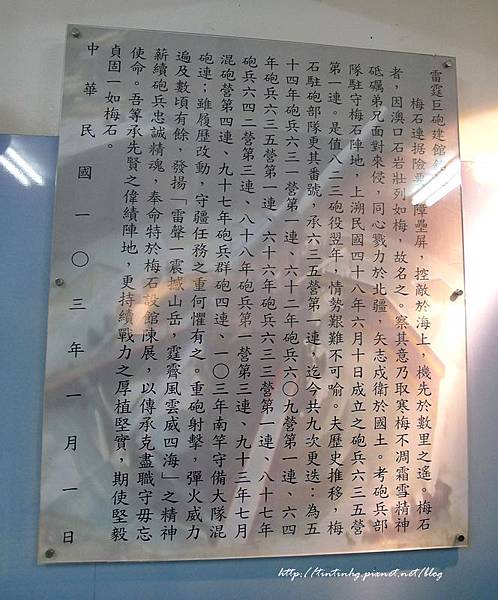 雷霆巨砲建館
梅石連據險要障壘屏，控敵於海上，機先於數里之遙。梅石
者，因澳口石岩壯列如梅，故名之。察其意乃取寒梅不凋霜雪精神
砥礪弟兄面對來侵，同心戮力於北疆，矢志戍衛於國土。考砲兵部
隊駐守梅石陣地，上溯民國四十八年六月十日成立之砲兵六三五營
第一連。是值八二三砲役翌年，情勢艱難不可喻。夫歷史推移，梅
石駐砲部隊更其番號，承六三五營第一連，迄今共九次更迭：為五
十四年砲兵六三一營第一連、六十二年砲兵六〇九營第一連、六四
年砲兵六三五營第一連、六十六年砲兵六三三營第一連、八十七年
砲兵六四二營第三連、八十八年砲兵第一營第三連、九十三年七月
混砲營第四連、九十七年砲兵群砲四連、一〇三年南竿守備大隊混
砲連；雖履歷改動，守疆任務之重何懼有之。重砲射擊，彈火威力
遍及數頃有餘，發揚「雷聲一震撼山岳，霆霽風雲威四海」之精神
薪續砲兵忠誠精魂，奉命特於梅石設館陳展，以傳承克盡職守毋忘
使命。吾等承先賢之偉績陣地，更持續戰力之厚植堅實，期使堅毅
貞固一如梅石。
中華民國一〇三年一月一日
http://tintinhg.pixnet.net/blog